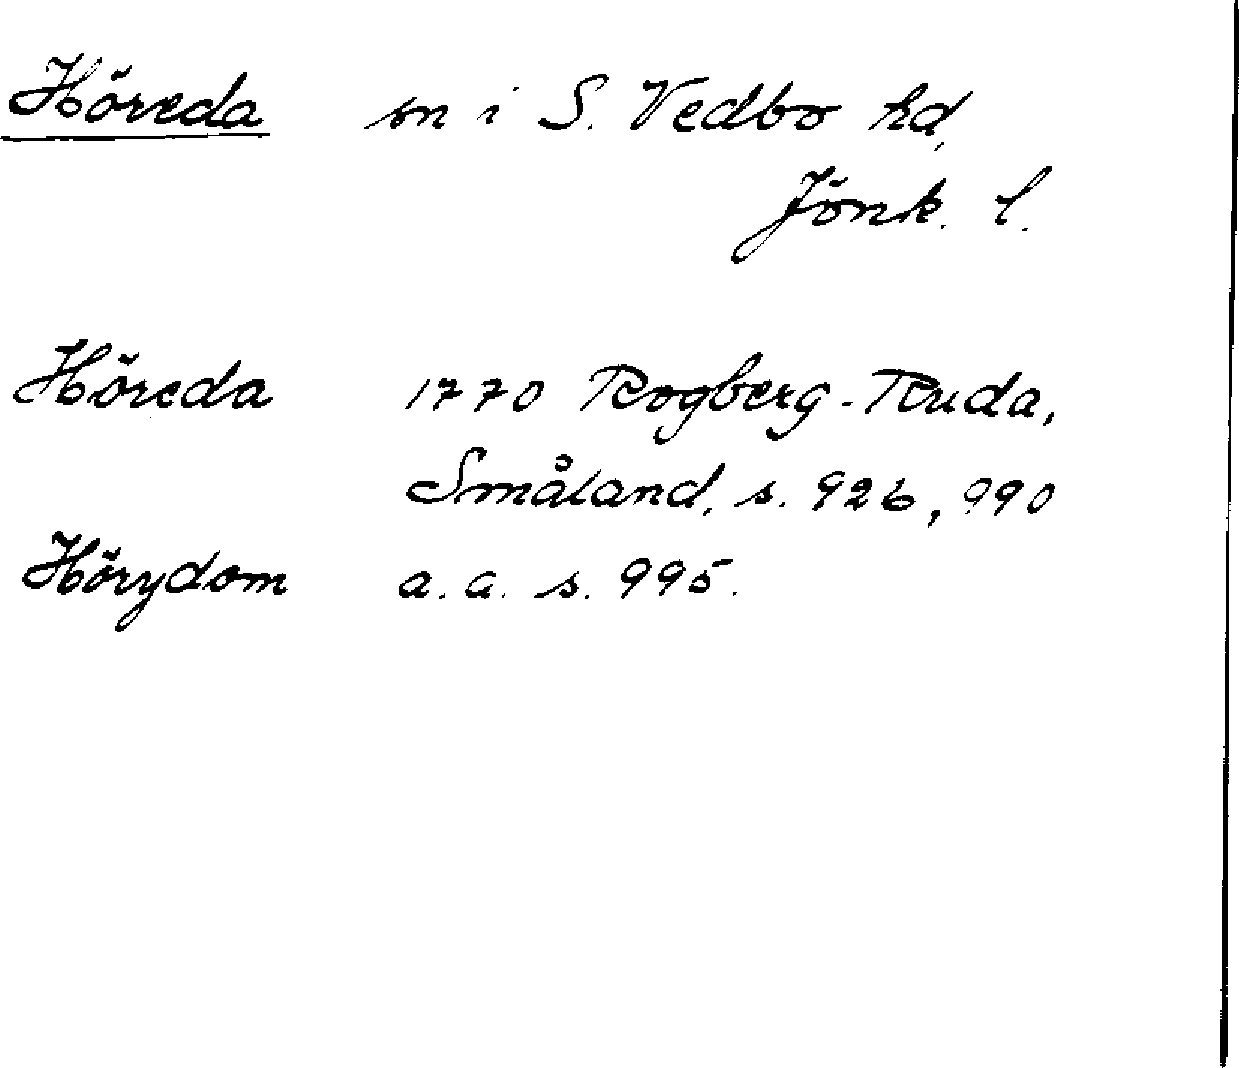 Höreda sn i S. Vedbo hd,
Jönk. l.
Höreda 1770 Rogberg-Ruda,
Småland, s. 926, 990
Hörydom a.a. s. 995.